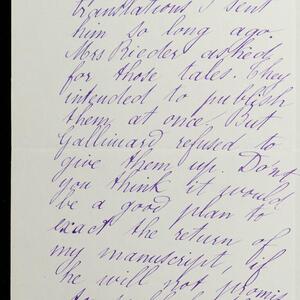 translations I sent
him so long ago.
Mrs Rieder asked
for those tales. They
intended to publish
them at once. But
Gallimard refused to
give them up. Don't
you think it would
be a good plan to
exact the return of
my manuscript, if
he will not promis